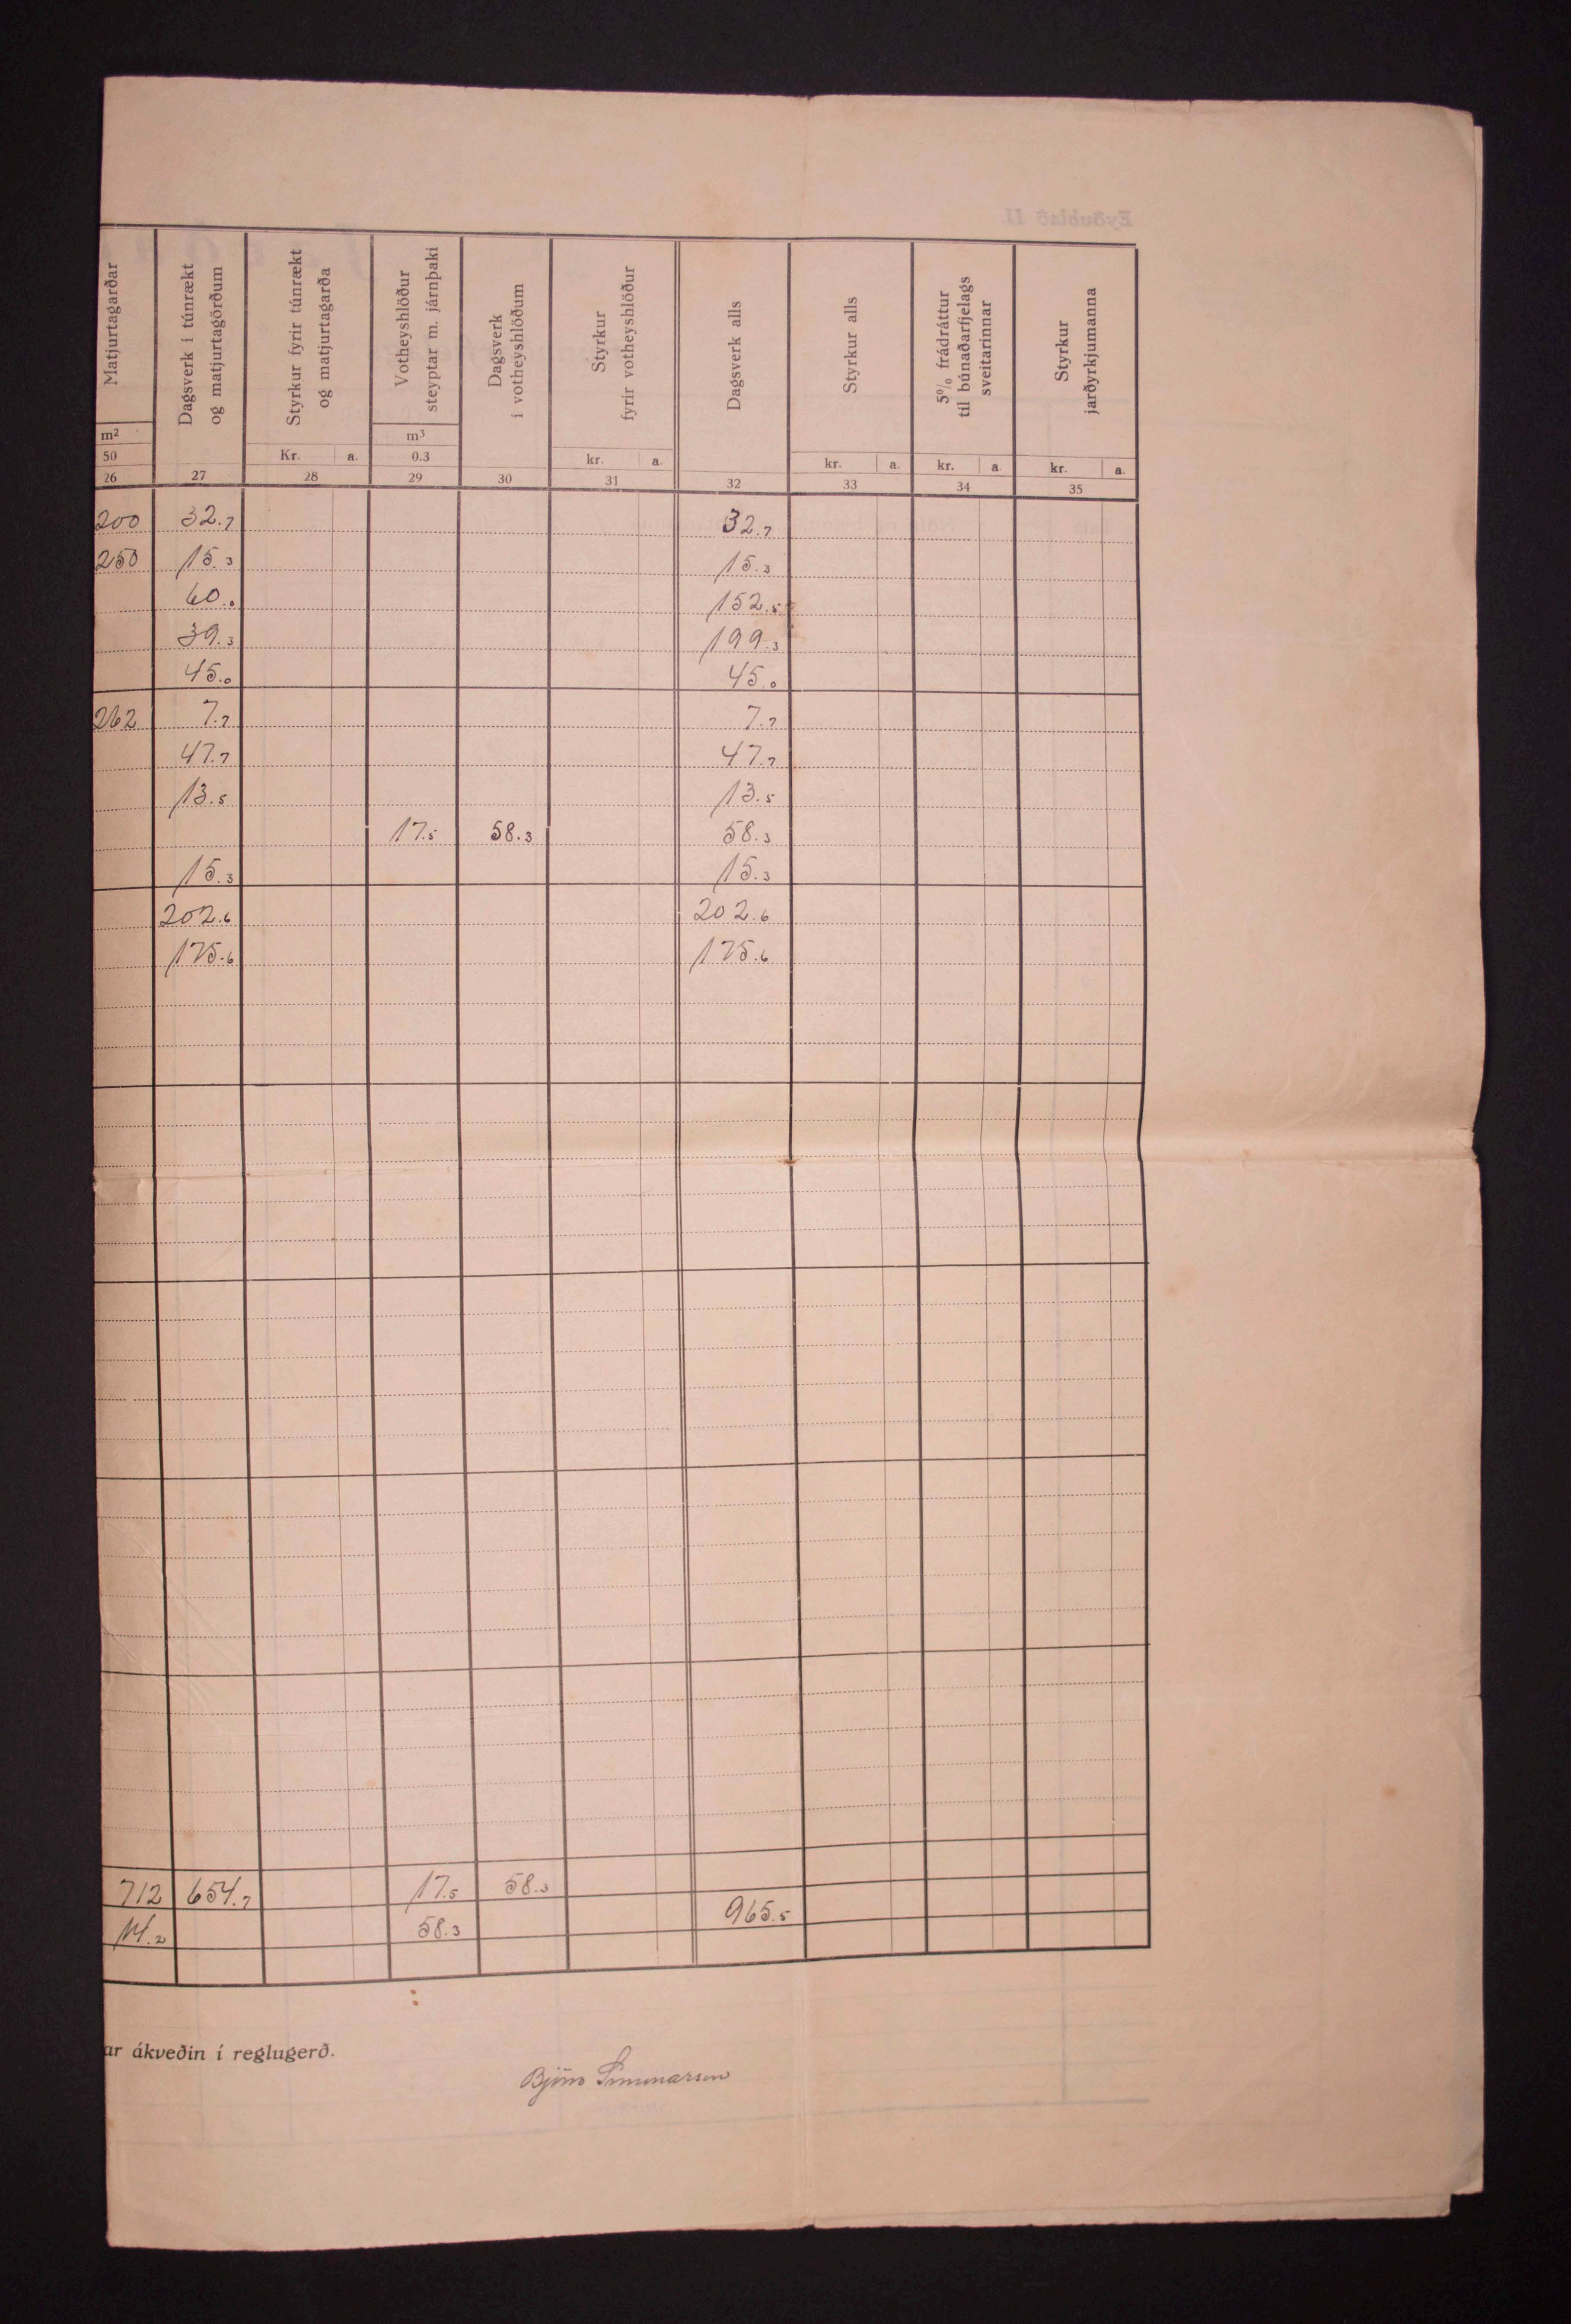 Eyðublað II.
Matjurtagarðar
Dagsverk í túnrækt
og matjurtagörðum
Styrkur fyrir túnrækt
og matjurtagarða
Votheyshlöður
steyptar m. járnþaki
Dagsverk
í votheyshlöðum
Styrkur
fyrir votheyshlöður
Dagsverk alls
Styrkur alls
5% frádráttur
til búnaðarfjelags
sveitarinnar
Styrkur
jarðyrkjumanna
m² m³
50 Kr. a. 0.3 kr. a. kr. a. kr. a. kr. a.
26 27 28 29 30 31 32 33 34 35
200 32.7 32.7
250 15.3 15.3
60.0 152.5
39.3 199.3
45.0 45.0
262 7.7 7.7
47.7 47.7
13.5 13.5
17.5 58.3 58.3
15.3 15.3
202.6 202.6
175.6 175.6
712 654.7 17.5 58.3
14.2 58.3 965.5
ar ákveðin í reglugerð.
Björn